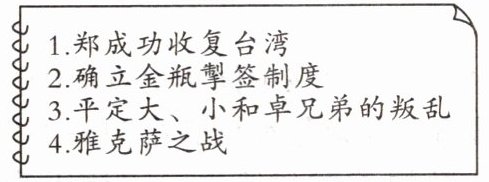 1.郑成功收复台湾
2.确立金瓶掣签制度
3.平定大、小和卓兄弟的叛乱
4.雅克萨之战